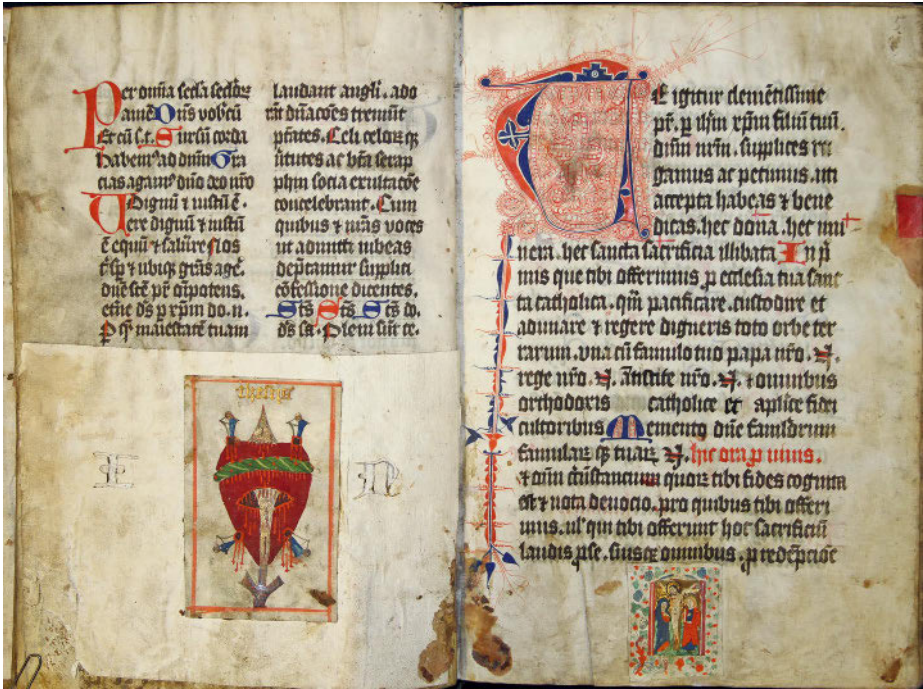 Per om̄ia sec̄la sec̄loꝝ
amē Dn̄s vobc̄ū
Et cū s.t. Sursū corda
habem⁹ ad dn̄m Gra
cias agam⁹ dn̄o deo nr̄o
Dignū ⁊ iustū ē.
Uere dignū ⁊ iustū
ē equū ⁊ salūre Nos
t̄ sꝑ ⁊ ubiqꝫ gr̄as agē.
dn̄e sc̄e pr̄ oīpotens.
et̄ne ds̄ ꝑ xp̄m do. n.
P̱ qꝫ maiestatē tuam
laudant angl̄i. ado
rāt dn̄acōes tremūt
pt̄ates. Celi celoꝝ qꝫ
ūtutes ac bt̄a serap
phin socia exultacōe
concelebrant. Cum
quibus ⁊ nr̄as voces
ut admitti iubeas
dep̄camur supplici
cōfessione dicentes.
Sc̄s Sc̄s Sc̄s do.
ds̄ sa. Pleni sūt ce.
E N
TE igitur clemētissime
pr̄. ꝑ ih̄m xp̄m filiū tuū.
dn̄m nr̄m. supplices ro
gamus ac petimus. uti
accepta habeas ⁊ bene
dicas. hec dona. hec mu
nera. hec sancta sacrificia illibata In p̄
mis que tibi offerimus ꝓ ecclesia tua sanc
ta catholica. qm̄ pacificare. custodire et
adunare ⁊ regere digneris toto orbe ter
rarum. vna cū famulo tuo papa nr̄o. N.
rege nr̄o. N. Antistite nr̄o. N. ⁊ omnibus
orthodoxis catholice et aplīce fidei
cultoribus Memento dn̄e famuloꝝum
famulaꝝ qꝫ tuaꝝ N. hic ora ꝓ uiuis.
⁊ oīm c̄ūstancium quoꝝ tibi fides cognita
est ⁊ nota deuocio. pro quibus tibi offeri
mus. ul' qui tibi offerunt hoc sacrificiū
laudis ꝓ se. suisqꝫ omnibus. ꝓ redēpcioē